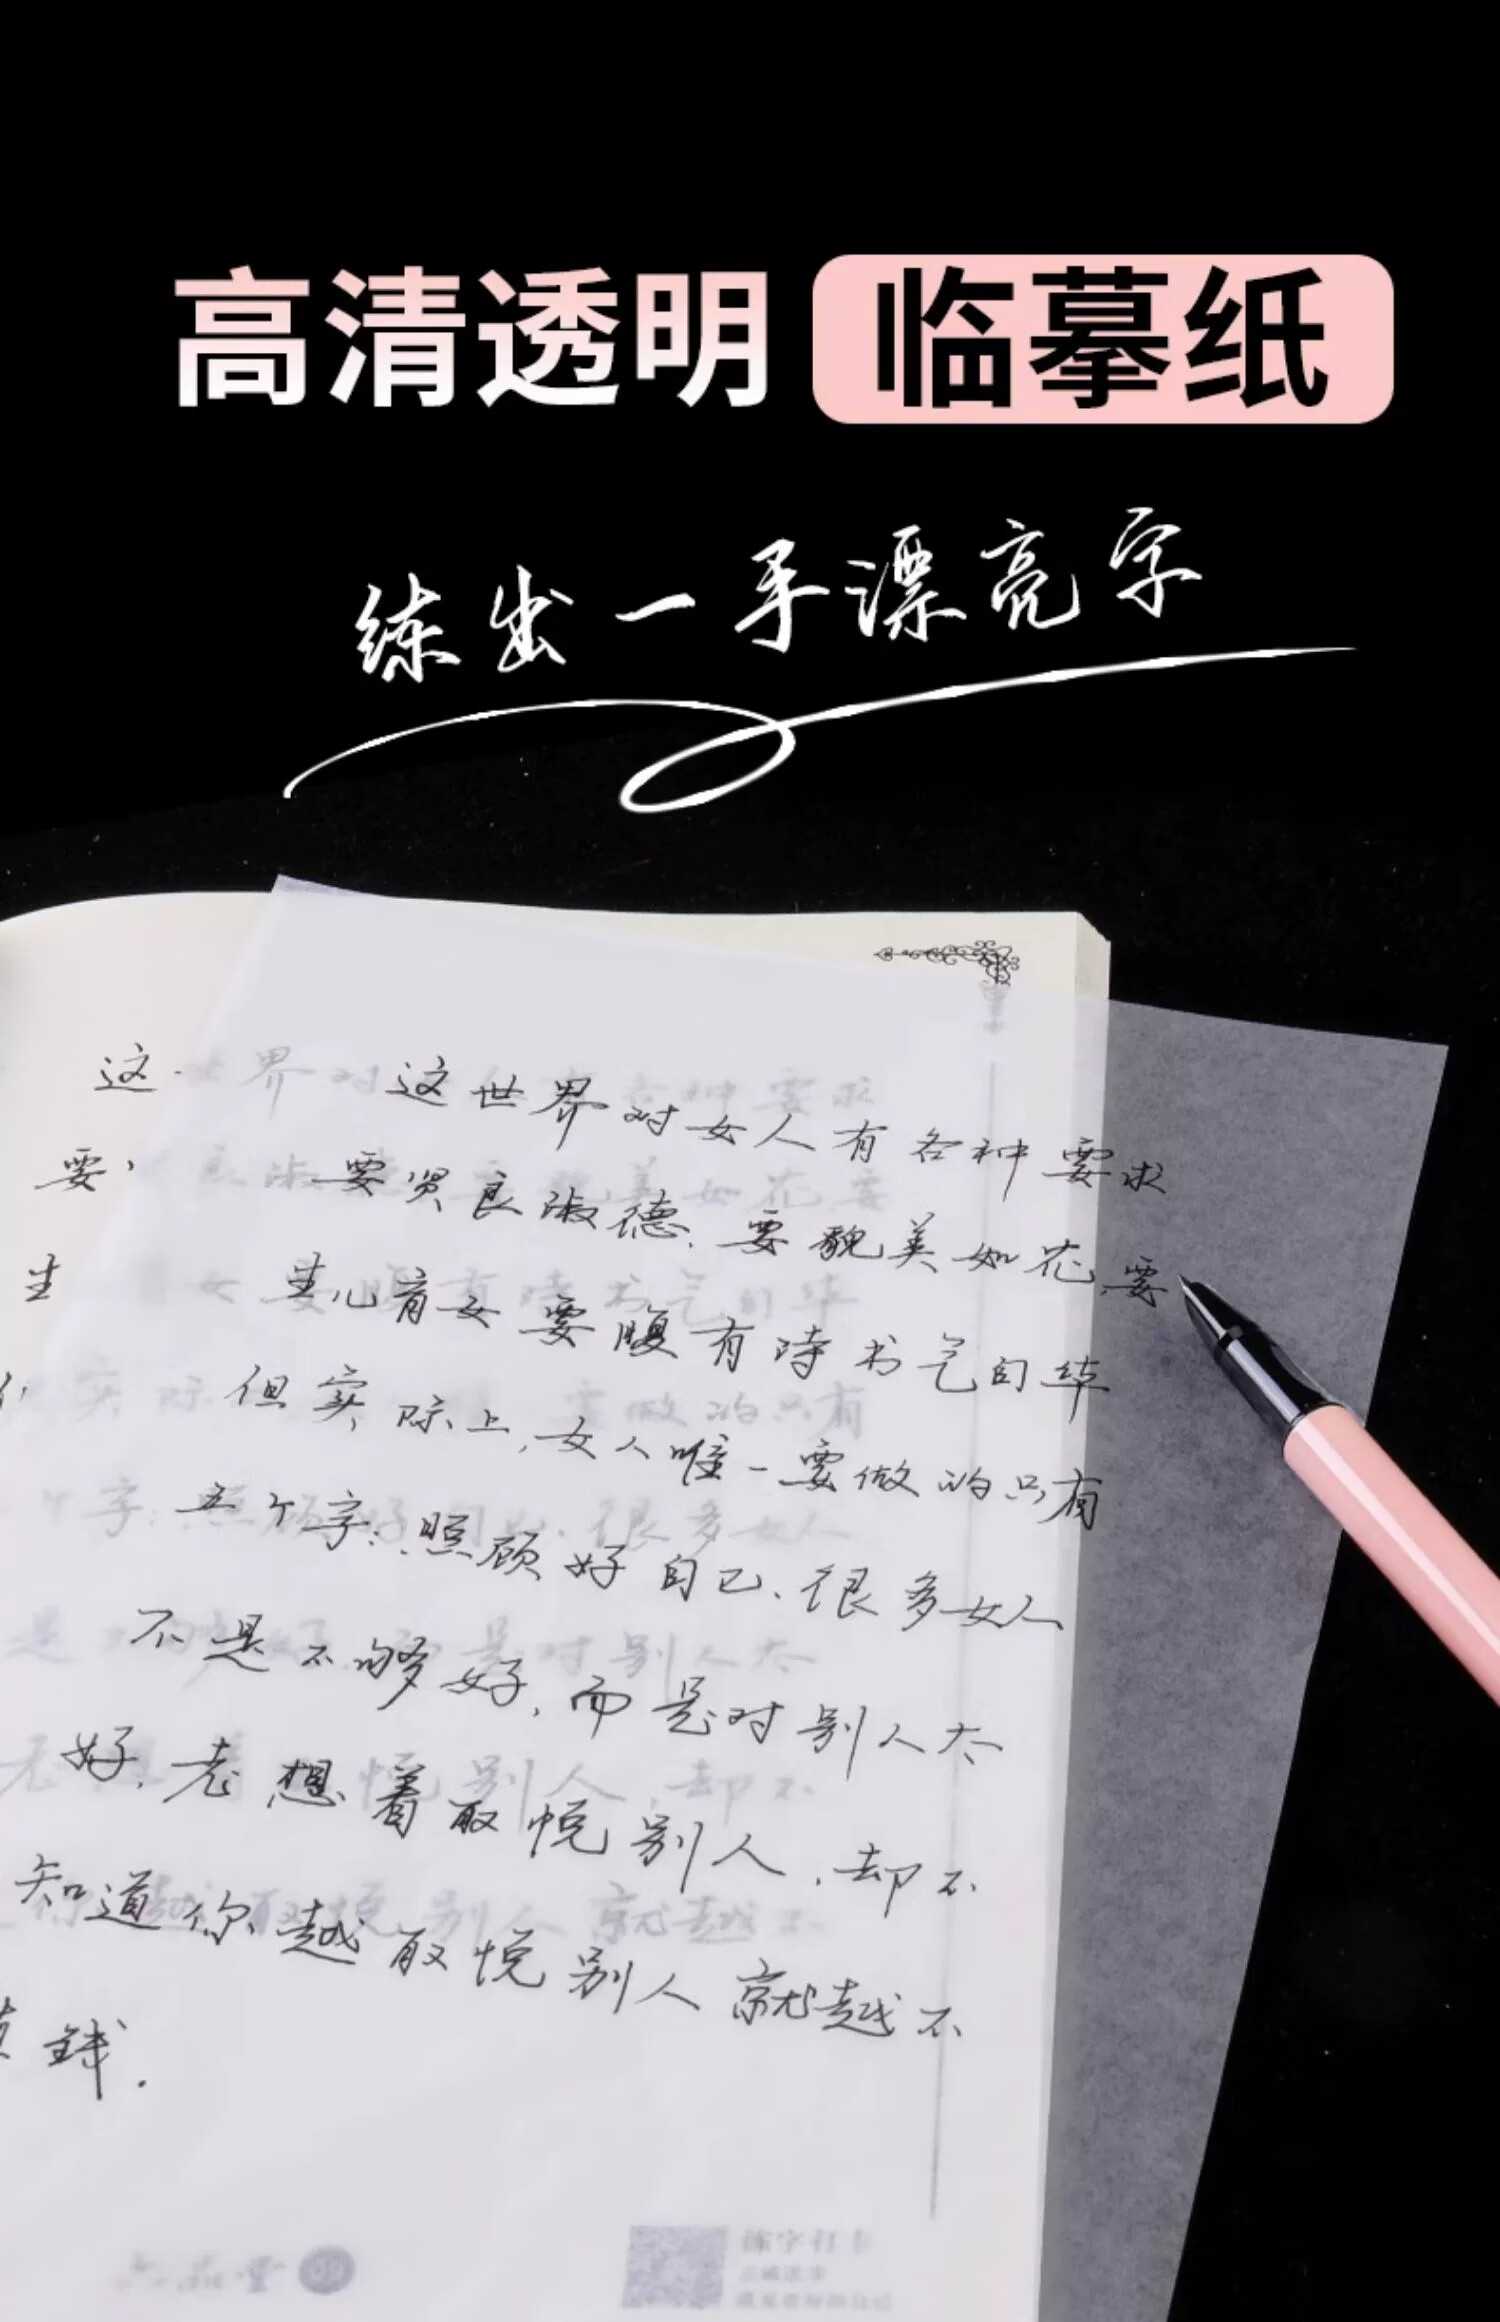 高清透明 临摹纸
练出一手漂亮字
这世界对女人有各种要求
要贤良淑德、要貌美如花、要
生儿育女 要腹有诗书气自华
但实际上,女人唯一要做的只有
五个字:照顾好自己、很多女人
不是不够好,而是对别人太
好,老想着取悦别人,却不
知道你越取悦别人就越不
钱.
练字打卡